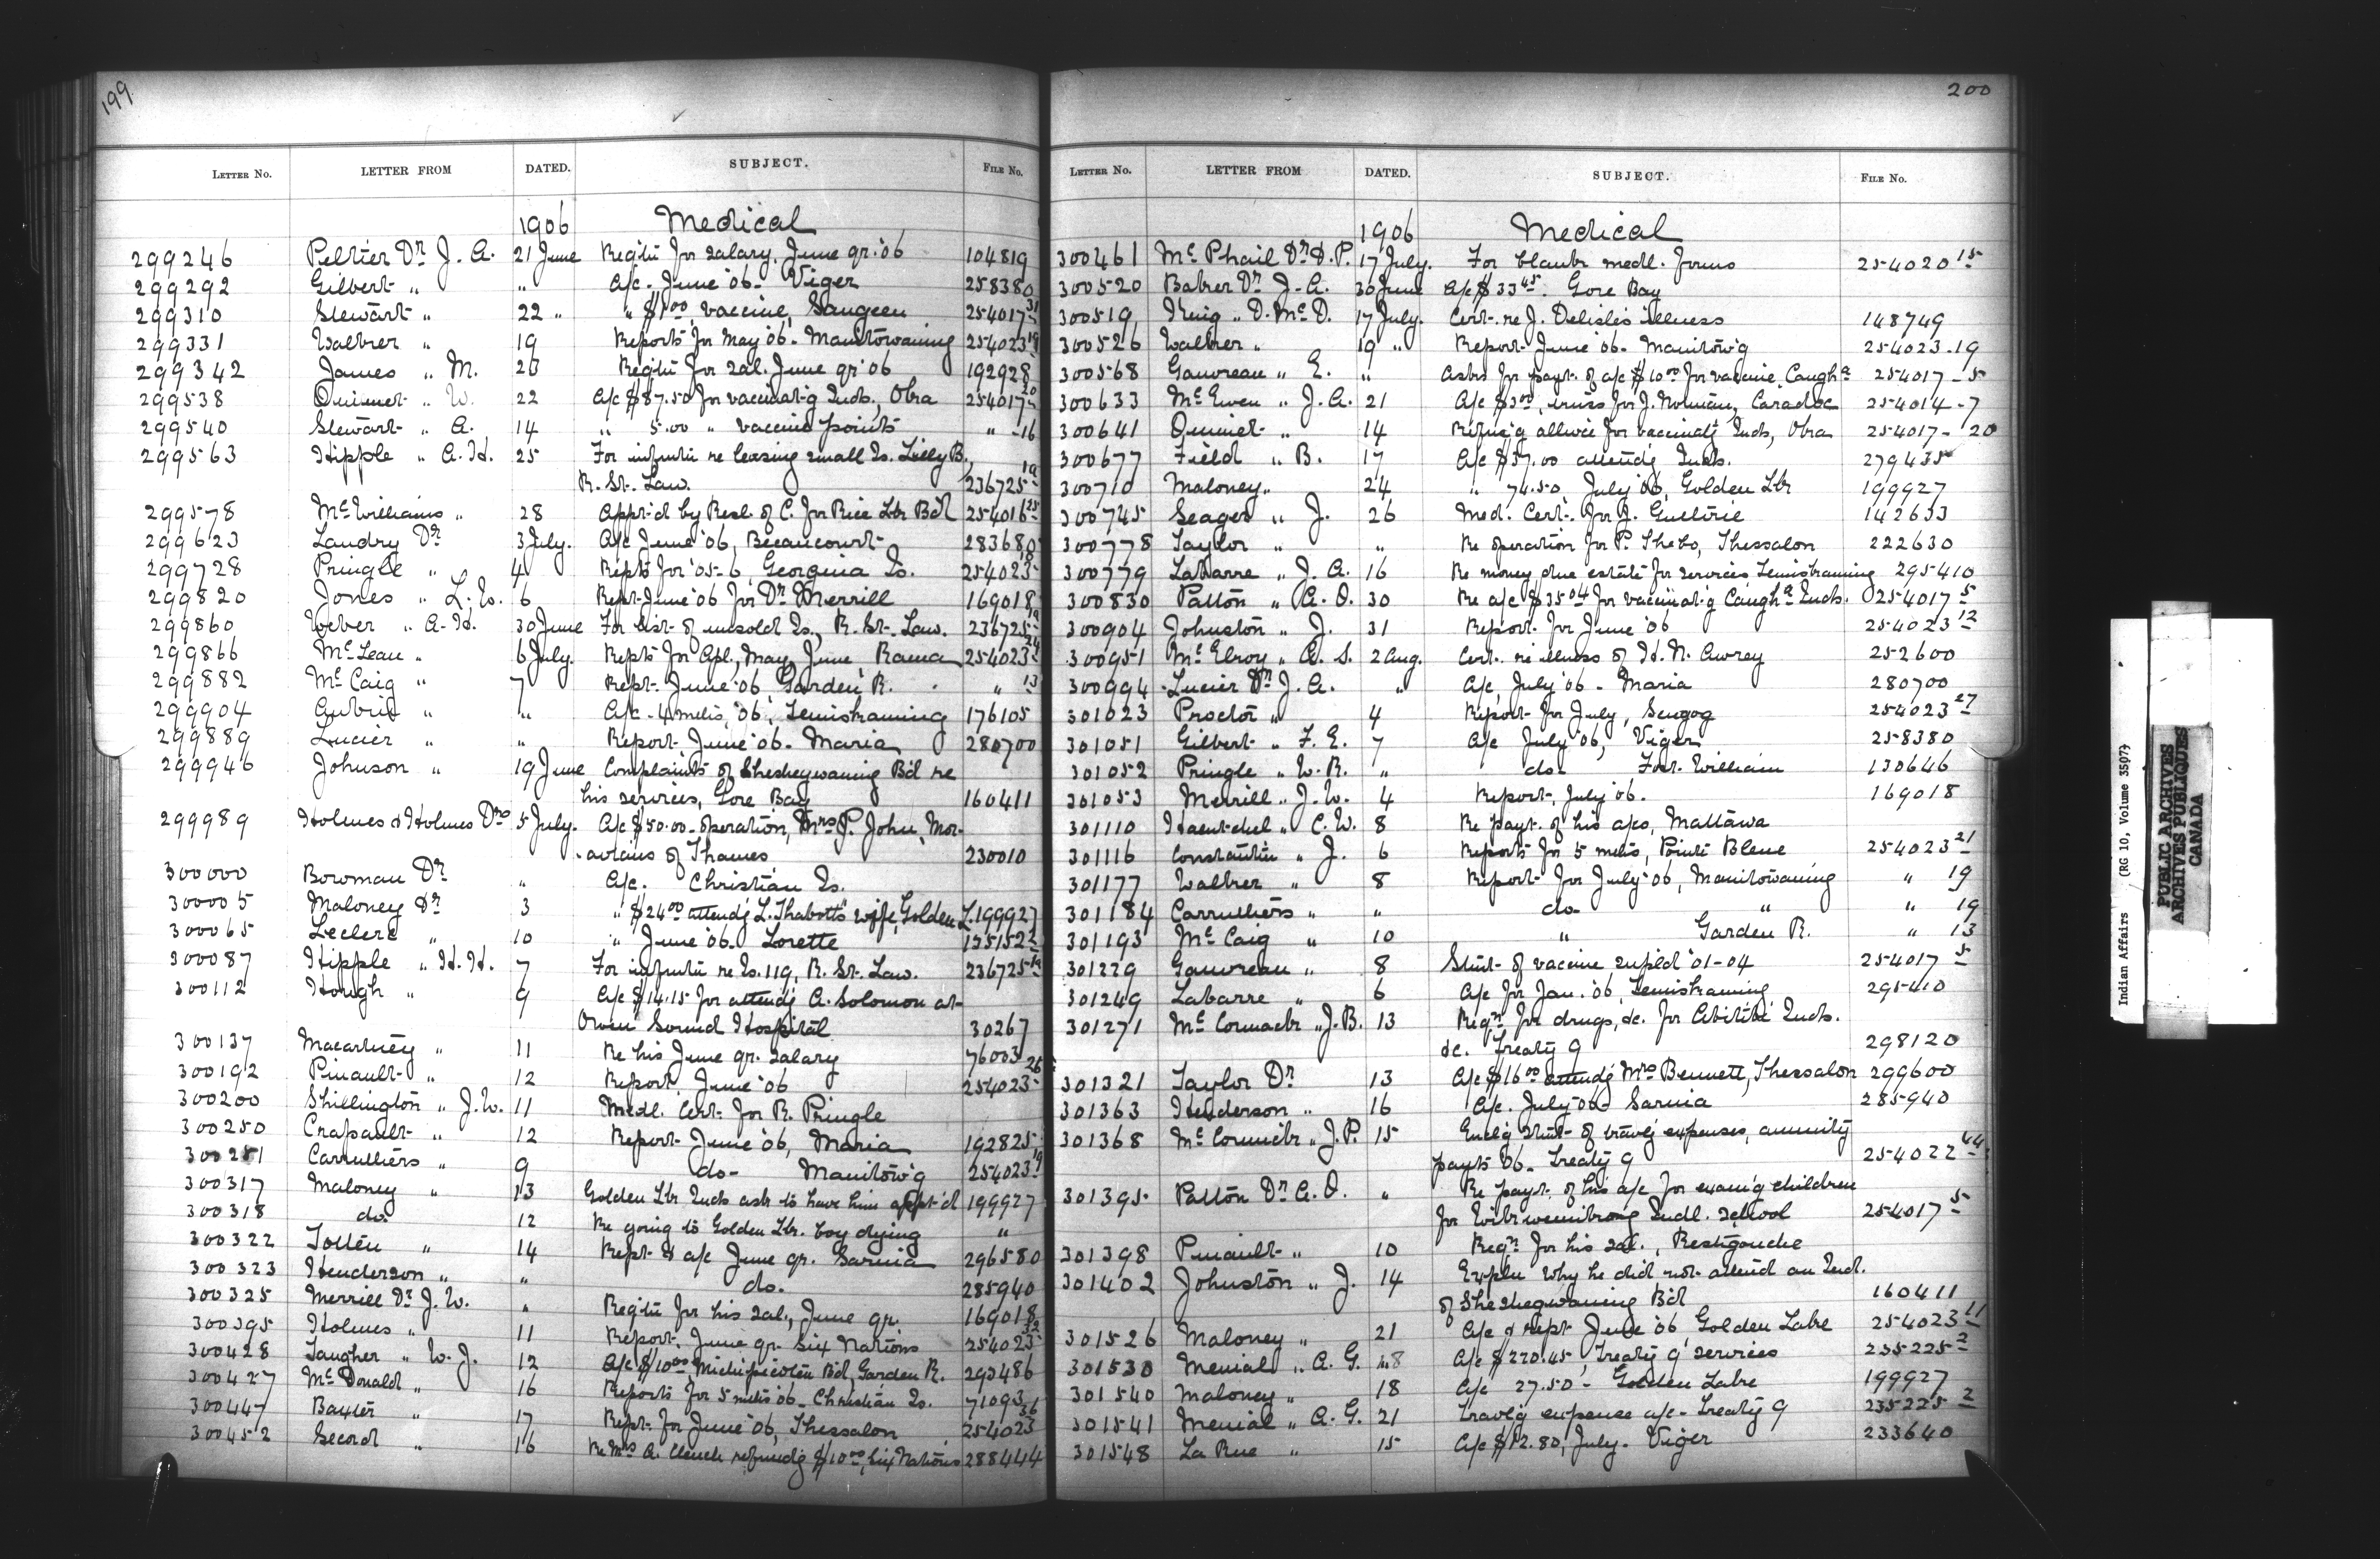 199
LETTER NO. LETTER FROM DATED. SUBJECT. FILE NO.
1906 Medical
299246 Peltier Dr J. A. 21 June Reqtn for salary, June qr. '06 104819
299292 Gilbert " " A/c. June '06 - Viger 258380
299310 Stewart " 22 " " $1.00, vaccine, Saugeen 254017 31
299331 Walker " 19 Reports for May '06 - Manitowaning 254023 19
299342 James " M. 23 Reqtn for sal. June qr '06 192928
299538 Ouimet " W. 22 A/c $87.50 for vaccinat'g Inds., Oka 254017 20
299540 Stewart " A. 14 " 5.00 " vaccine points " -16
299563 Hipple " A. H. 25 For informtn re leasing small Is. Lilly B.
R. St. Law. 236725 19
299578 McWilliams " 28 Appt'd by Resl. of C. for Rice Lk Bd 254016 25
299623 Landry Dr 3 July. A/c June '06, Becancourt 283680
299728 Pringle " 4 Repts for '05-6, Georgina Is. 254023
299820 Jones " L. W. 6 Rept June '06 for Dr Merrill 169018
299860 Weber " A. H. 30 June For list of unsold Is., R. St. Law. 236725 19
299866 McLean " 6 July. Repts for Apl., May, June, Rama 254023 24
299882 McCaig " 7 Rept. June '06, Garden R. " 13
299904 Aubrie " " A/c - 4 mths, '06, Temiskaming 176105
299889 Lucier " " Report, June '06 - Maria 280700
299946 Johnson " 19 June Complaints of Sheshegwaning Bd re
his services, Gore Bay 160411
299989 Holmes & Holmes Drs 5 July. A/c $50.00 - operation, Mrs P. John, Mor-
avians of Thames 230010
300000 Bowman Dr " A/c. Christian Is.
300005 Maloney Dr 3 " $24.00 attend'g L. Thabott's wife, Golden L. 199927
300065 Leclerc " 10 " June '06 - Lorette 125152 2
300087 Hipple " H. H. 7 For informtn re Is. 119, R. St. Law. 236725 19
300112 Hough " 9 A/c $14.15 for attend'g A. Solomon at
Owen Sound Hospital 30267
300137 Macartney " 11 Re his June qr. salary 76003
300192 Pinault " 12 Report, June '06 254023 26
300200 Shillington " J. W. 11 Medl. Cert. for R. Pringle
300250 Crapault " 12 Report June '06, Maria 192825
300251 Carruthers " 9 do - Manitow'g 254023 19
300317 Maloney " 13 Golden Lk Inds ask to have him appt'd 199927
300318 do. 12 Re going to Golden Lk. boy dying "
300322 Totten " 14 Rept & a/c June qr. Sarnia 296580
300323 Henderson " " do. 285940
300325 Merrill Dr J. W. " Reqtn for his sal., June qr. 169018
300395 Holmes " 11 Report, June qr. Six Nations 254023 32
300428 Taugher " W. J. 12 A/c $10.00 Michipicoten Bd, Garden R. 290486
300427 McDonald " 16 Reports for 5 mths '06 - Christian Is. 71093
300447 Baxter " 17 Rept. for June '06, Thessalon 254023 36
300452 Secord " 16 Re Mrs A. Clench refund'g $10.00, Six Nations 288444
200
LETTER NO. LETTER FROM DATED. SUBJECT. FILE NO.
1906 Medical
300461 McPhail Dr D. P. 17 July. For blank medl. forms 254020 15
300520 Baker Dr J. A. 30 June A/c $33.45. Gore Bay
300519 King " D. McD. 17 July. Cert. re J. Delisle's illness 148749
300526 Walker " 19 " Report June '06 - Manitow'g 254023-19
300568 Gauvreau " E. " Asks for payt. of a/c $10.00 for vaccine, Caugha 254017-5
300633 McEwen " J. A. 21 A/c $3.00, truss for J. Noman, Caradoc 254014-7
300641 Ouimet " 14 allwce for vaccinat'g Inds, Oka 254017-20
300677 Field " B. 17 A/c $57.00 attend'g Inds. 279435
300710 Maloney " 24 " 74.50, July '06, Golden Lk 199927
300745 Seager " J. 26 Med. Cert. for J. Guthrie 142633
300778 Taylor " " Re operation for P. Shebo, Thessalon 222630
300779 Labarre " J. A. 16 Re money due estate for services Temiskaming 295410
300830 Patton " A. O. 30 Re a/c $35.04 for vaccinat'g Caugha Inds. 254017 5
300904 Johnston " J. 31 Report for June '06 254023 12
300951 McElroy " A. S. 2 Aug. Cert. re illness of H. N. Awrey 252600
300994 Lucier Dr J. A. " A/c, July '06 - Maria 280700
301023 Proctor " 4 Report for July, Scugog 254023 27
301051 Gilbert " F. E. 7 A/c July '06, Viger 258380
301052 Pringle " W. R. " do - Fort William 130646
301053 Merrill " J. W. 4 Report, July '06. 169018
301110 Haentschel " C. W. 8 Re payt. of his a/cs, Mattawa
301116 Constantin " J. 6 Reports for 5 mths, Pointe Bleue 254023 21
301177 Walker " 8 Report for July '06, Manitowaning " 19
301184 Carruthers " " do - " " 19
301193 McCaig " 10 " Garden R. " 13
301229 Gauvreau " 8 Stmt of vaccine supl'd '01-04 254017 5
301249 Labarre " 6 A/c for Jan. '06, Temiskaming 295410
301271 McCormack " J. B. 13 Reqn for drugs, &c. for Abitibi Inds.
&c. Treaty 9 298120
301321 Taylor Dr 13 A/c $16.00 attend'g Mrs Bennett, Thessalon 299600
301363 Henderson " 16 A/c. July '06 - Sarnia 285940
301368 McCormick " J. P. 15 Encl'g stmt of travl'g expenses, annuity
payts '06 - Treaty 9 254022 44
301395 Patton Dr A. O. " Re payt. of his a/c for exam'g children
for Wikwemikong Indl. school 254017 5
301398 Pinault " 10 Reqn for his sal., Restigouche
301402 Johnston " J. 14 Expln why he did not attend an Ind.
of Sheshegwaning Bd 160411
301526 Maloney " 21 A/c & rept June '06, Golden Lake 254023 11
301530 Menial " A. G. 18 A/c $220.45, Treaty 9 services 235225 2
301540 Maloney " 18 A/c 27.50 - Golden Lake 199927
301541 Menial " A. G. 21 Travl'g expense a/c - Treaty 9 235225 2
301548 La Rue " 15 A/c $12.80, July - Viger 233640
Indian Affairs (RG 10, Volume 3507)
PUBLIC ARCHIVES
ARCHIVES PUBLIQUES
CANADA